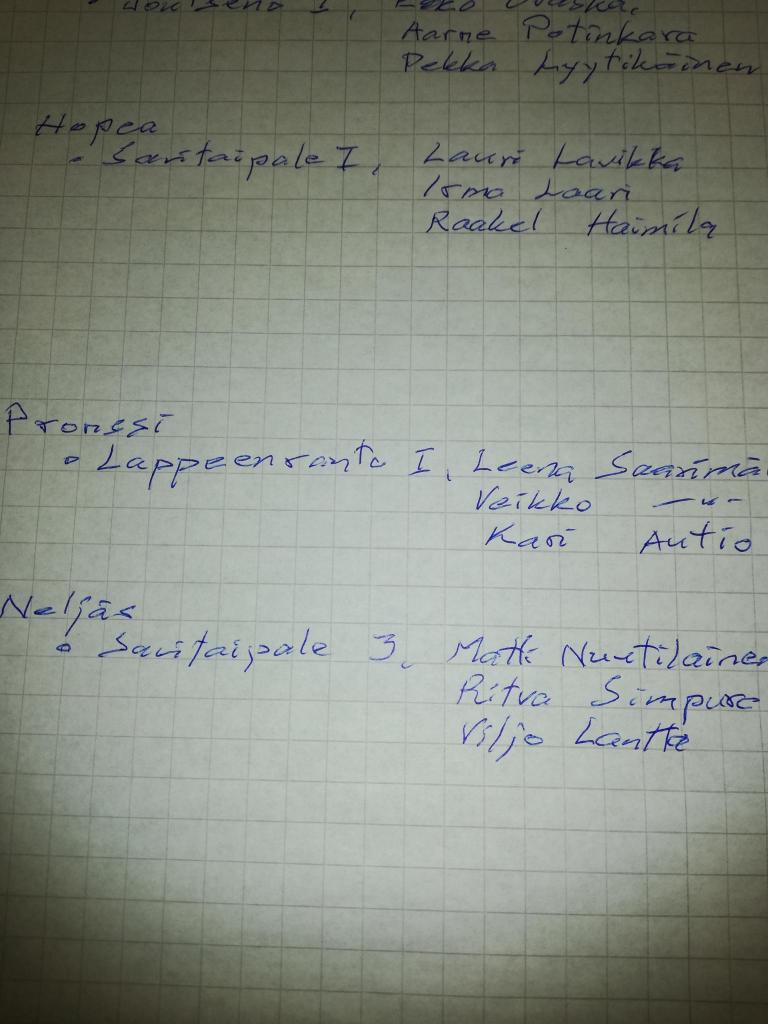 I,
Aarne Potinkara
Pekka Lyytikäinen
Hopea
• Savitaipale I, Lauri Lavikka
Irma Laari
Raakel Haimila
Pronssi
• Lappeenranta I, Leena Saarimä
Veikko —"—
Kari Autio
Neljäs
• Savitaipale 3, Matti Nuutilainen
Ritva Simpura
Viljo Lantta